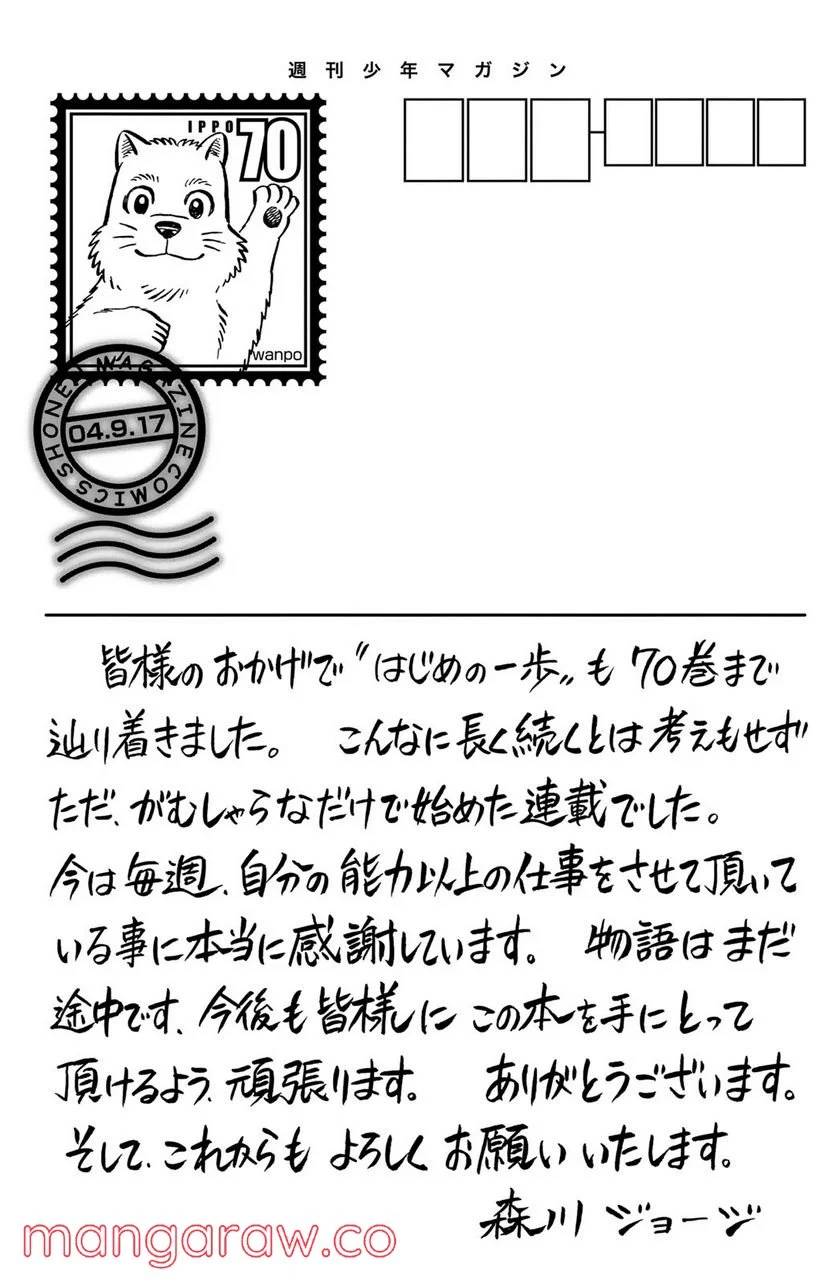 週刊少年マガジン
IPPO 70
wanpo
SHONEN MAGAZINE COMICS
04.9.17
皆様のおかげで〝はじめの一歩〟も 70巻まで
辿り着きました。 こんなに長く続くとは考えもせず
ただ、がむしゃらなだけで始めた連載でした。
今は毎週、自分の能力以上の仕事をさせて頂いて
いる事に本当に感謝しています。 物語はまだ
途中です、今後も皆様に この本を手にとって
頂けるよう、頑張ります。 ありがとうございます。
そして、これからも よろしく お願い いたします。
森川 ジョージ
mangaraw.co